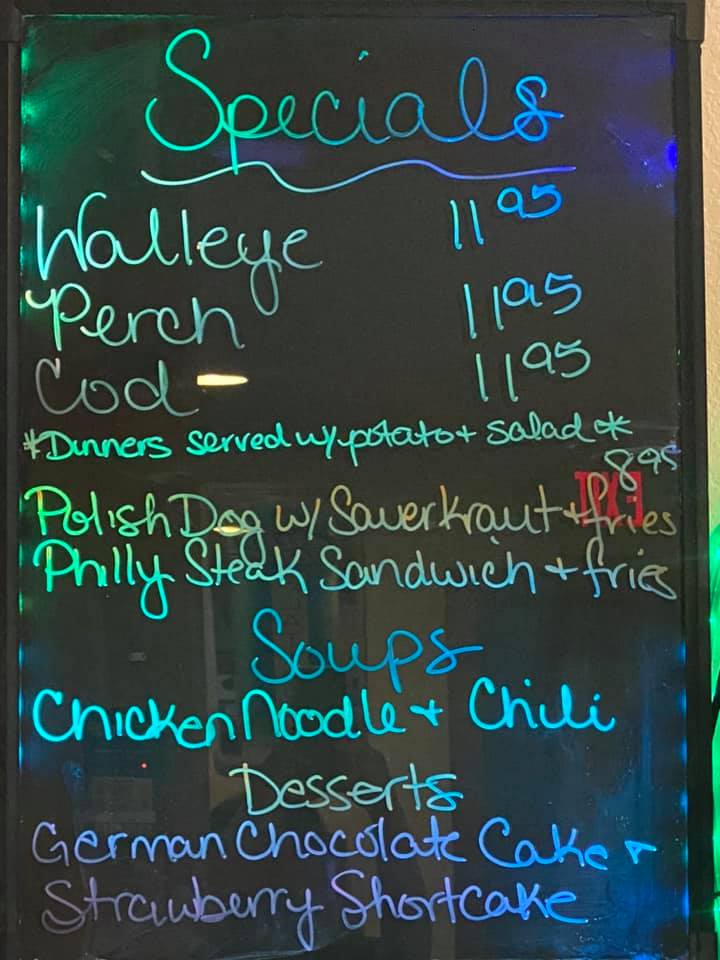 Specials
Walleye 11 95
Perch 11 95
Cod 11 95
*Dinners served w/ potato + salad *
8 95
Polish Dog w/ Sauerkraut + fries
Philly Steak Sandwich + fries
Soups
Chicken Noodle + Chili
Desserts
German Chocolate Cake +
Strawberry Shortcake